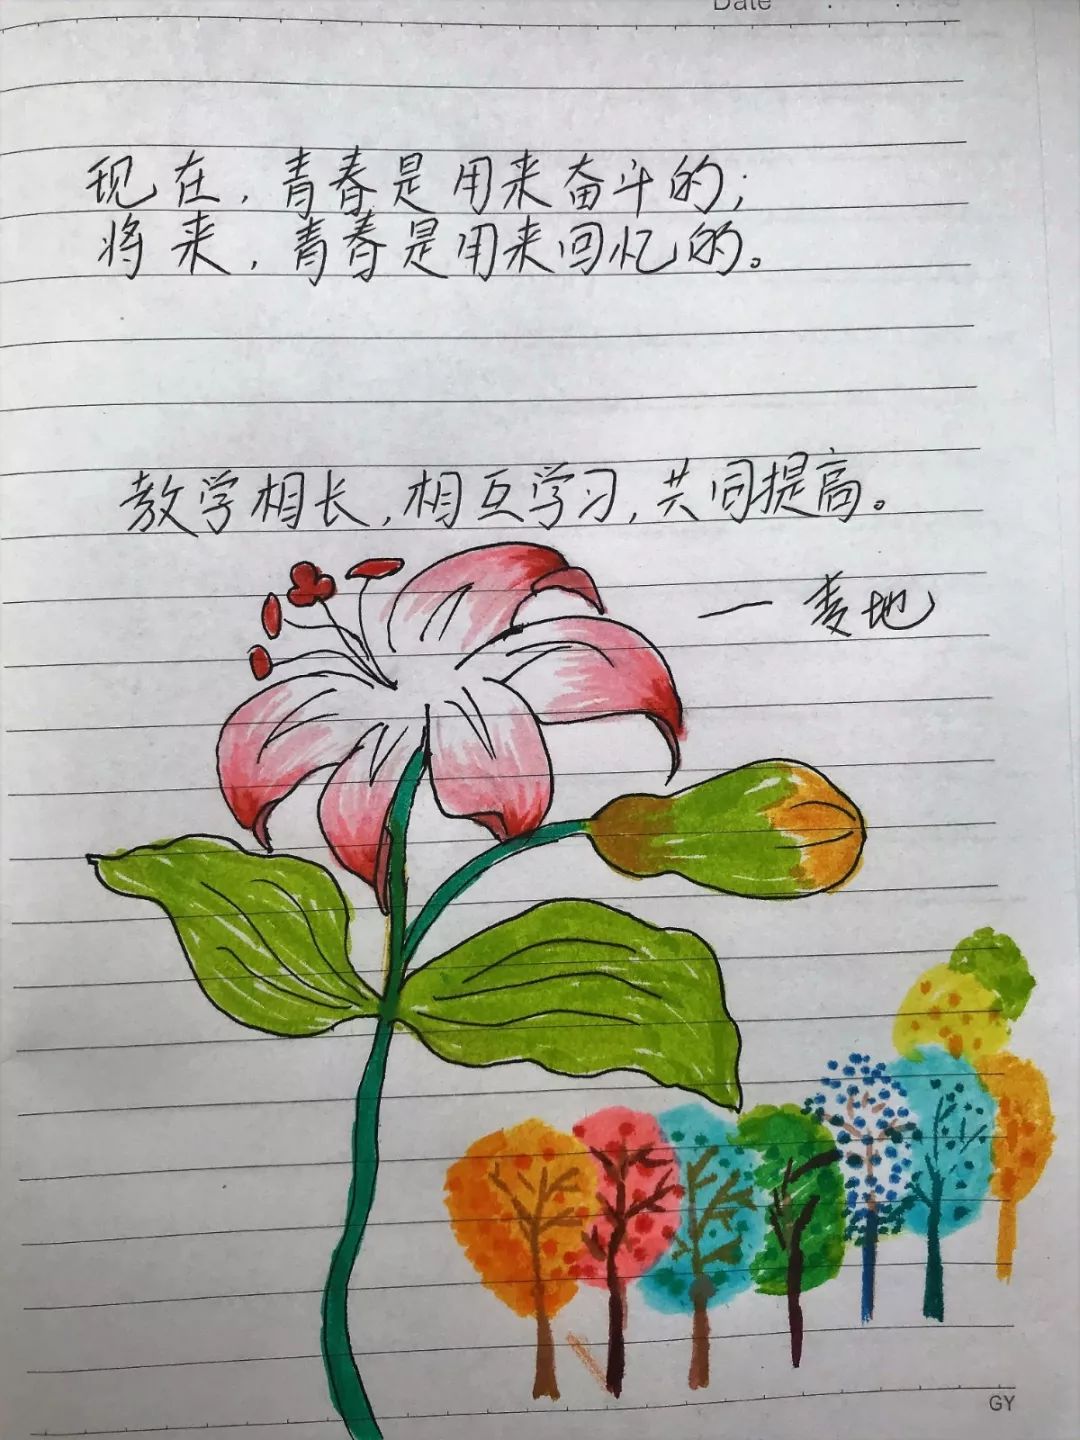 Date
现在,青春是用来奋斗的;
将来,青春是用来回忆的。
教学相长,相互学习,共同提高。
一麦地
GY